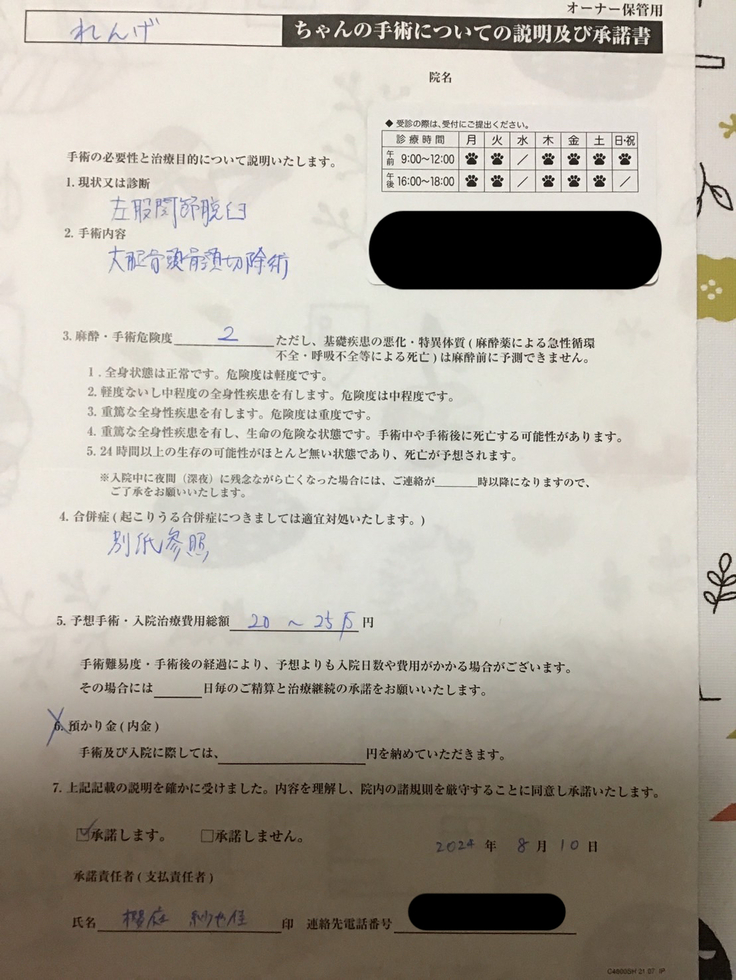 オーナー保管用
れんげ ちゃんの手術についての説明及び承諾書
院名
◆ 受診の際は、受付にご提出ください。
診療時間 月 火 水 木 金 土 日・祝
午前 9:00〜12:00 ／
午後 16:00〜18:00 ／ ／
手術の必要性と治療目的について説明いたします。
1. 現状又は診断
左股関節脱臼
2. 手術内容
大腿骨頭骨頚切除術
3. 麻酔・手術危険度 2 ただし、基礎疾患の悪化・特異体質 ( 麻酔薬による急性循環
不全・呼吸不全等による死亡 ) は麻酔前に予測できません。
1 . 全身状態は正常です。危険度は軽度です。
2. 軽度ないし中程度の全身性疾患を有します。危険度は中程度です。
3. 重篤な全身性疾患を有します。危険度は重度です。
4. 重篤な全身性疾患を有し、生命の危険な状態です。手術中や手術後に死亡する可能性があります。
5. 24 時間以上の生存の可能性がほとんど無い状態であり、死亡が予想されます。
※入院中に夜間（深夜）に残念ながら亡くなった場合には、ご連絡が______時以降になりますので、
ご了承をお願いいたします。
4. 合併症 ( 起こりうる合併症につきましては適宜対処いたします。)
別紙参照
5. 予想手術・入院治療費用総額 20 〜 25万 円
手術難易度・手術後の経過により、予想よりも入院日数や費用がかかる場合がございます。
その場合には______日毎のご精算と治療継続の承諾をお願いいたします。
6. 預かり金 ( 内金 )
手術及び入院に際しては、______円を納めていただきます。
7. 上記記載の説明を確かに受けました。内容を理解し、院内の諸規則を厳守することに同意し承諾いたします。
☑承諾します。 □承諾しません。
2024 年 8 月 10 日
承諾責任者 ( 支払責任者 )
氏名 櫻庭 紗也佳 印 連絡先電話番号